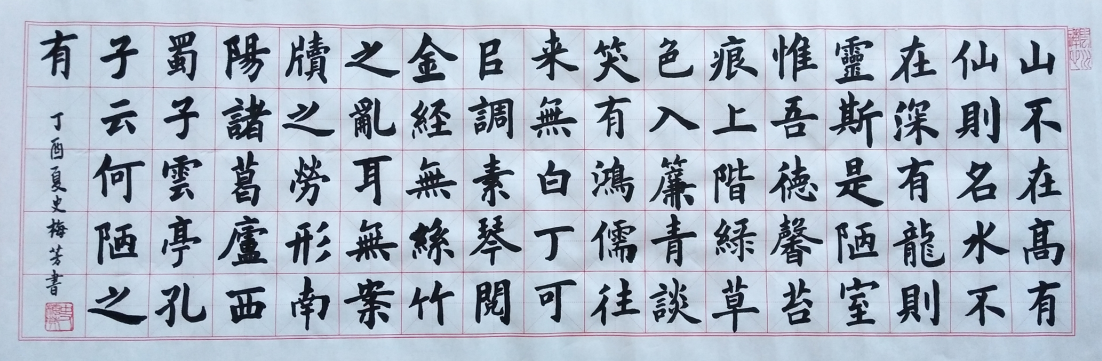 山不在高有
仙則名水不
在深有龍則
靈斯是陋室
惟吾德馨苔
痕上階緑草
色入簾青談
笑有鴻儒往
来無白丁可
㠯調素琴閱
金経無絲竹
之亂耳無案
牘之勞形南
陽諸葛廬西
蜀子雲亭孔
子云何陋之
有
丁酉夏史梅芳書